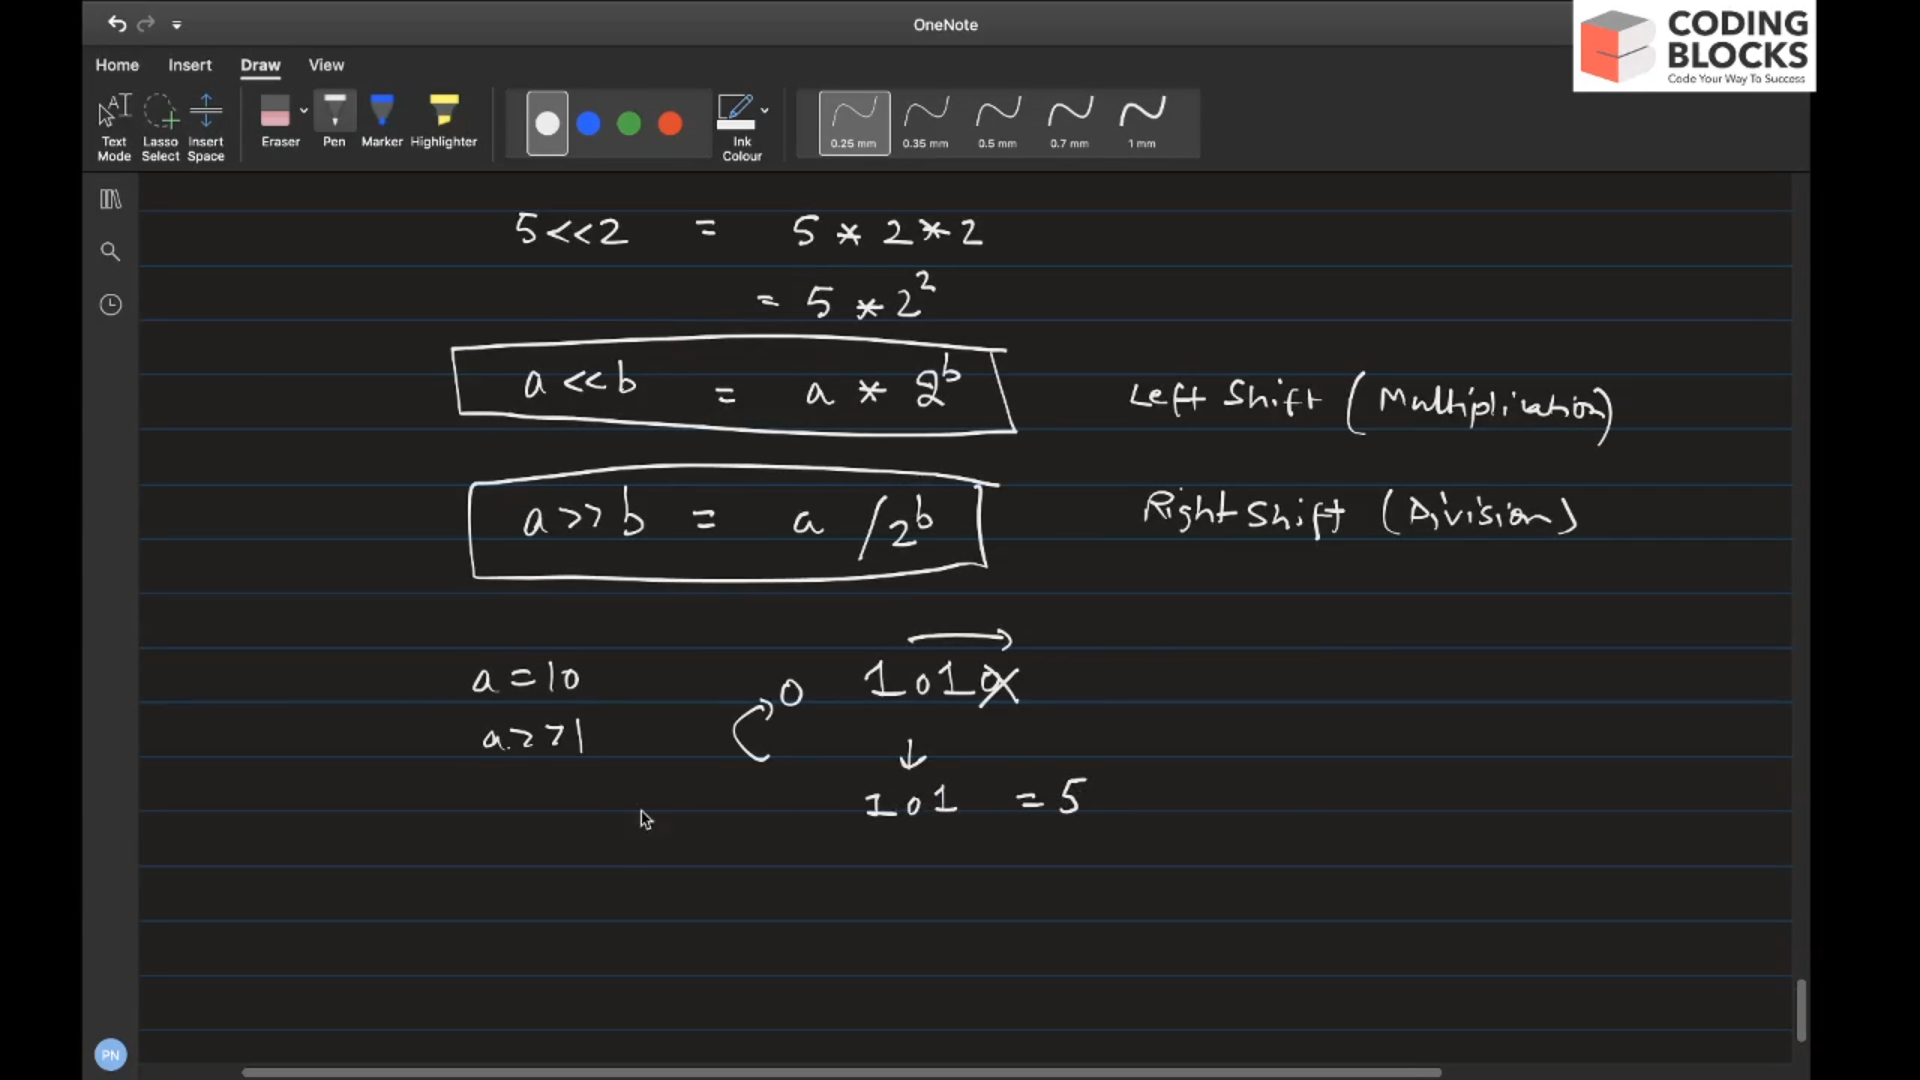 OneNote
CODING
BLOCKS
Code Your Way To Success
Home Insert Draw View
Text Mode Lasso Select Insert Space Eraser Pen Marker Highlighter Ink Colour 0.25 mm 0.35 mm 0.5 mm 0.7 mm 1 mm
5<<2 = 5 * 2*2
= 5 * 2²
a <<b = a * 2^b Left Shift (Multiplication)
a>> b = a /2^b Right Shift (Division)
a = 10 0 1010
a >>1
101 = 5
PN